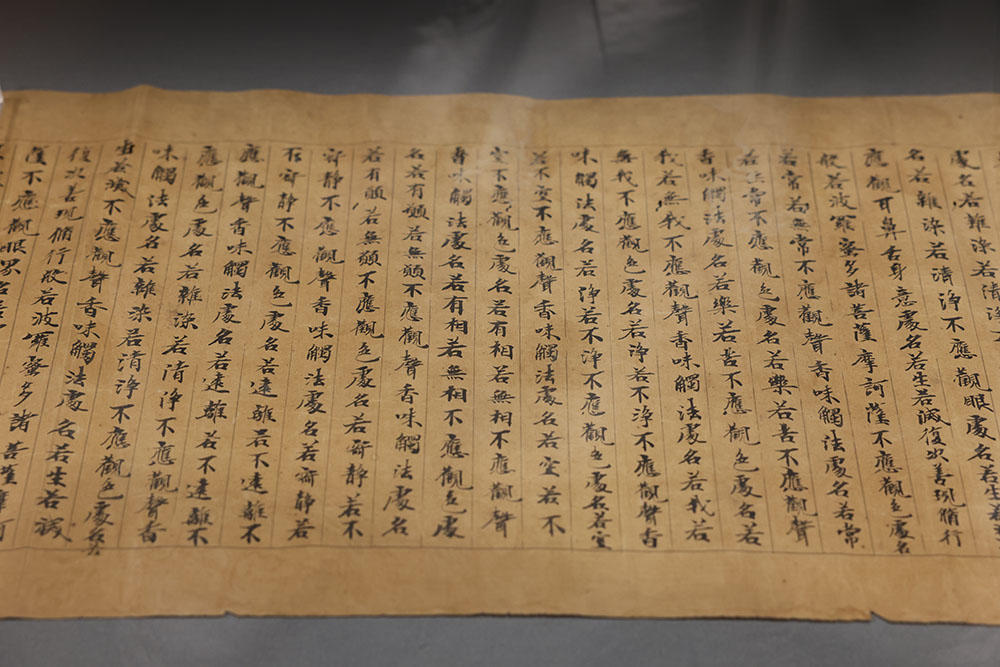 處名若雜染若清淨
名若雜染若清淨不應觀眼處名若生若
應觀耳鼻舌身意處名若生若滅復次善現脩行
般若波羅蜜多諸菩薩摩訶薩不應觀色處名
若常若無常不應觀聲香味觸法處名若常
若無常不應觀色處名若樂若苦不應觀聲
香味觸法處名若樂若苦不應觀色處名若
我若無我不應觀聲香味觸法處名若我若
無我不應觀色處名若淨若不淨不應觀聲香
味觸法處名若淨若不淨不應觀色處名若空
若不空不應觀聲香味觸法處名若空若不
空不應觀色處名若有相若無相不應觀聲
香味觸法處名若有相若無相不應觀色處
名若有願若無願不應觀聲香味觸法處名
若有願若無願不應觀色處名若寂靜若不
寂靜不應觀聲香味觸法處名若寂靜若
不寂靜不應觀色處名若遠離若不遠離不
應觀聲香味觸法處名若遠離若不遠離不
應觀色處名若雜染若清淨不應觀聲香
味觸法處名若雜染若清淨不應觀色處名若
生若滅不應觀聲香味觸法處名若生若滅
復次善現脩行般若波羅蜜多諸菩薩摩訶
薩不應觀眼處名若